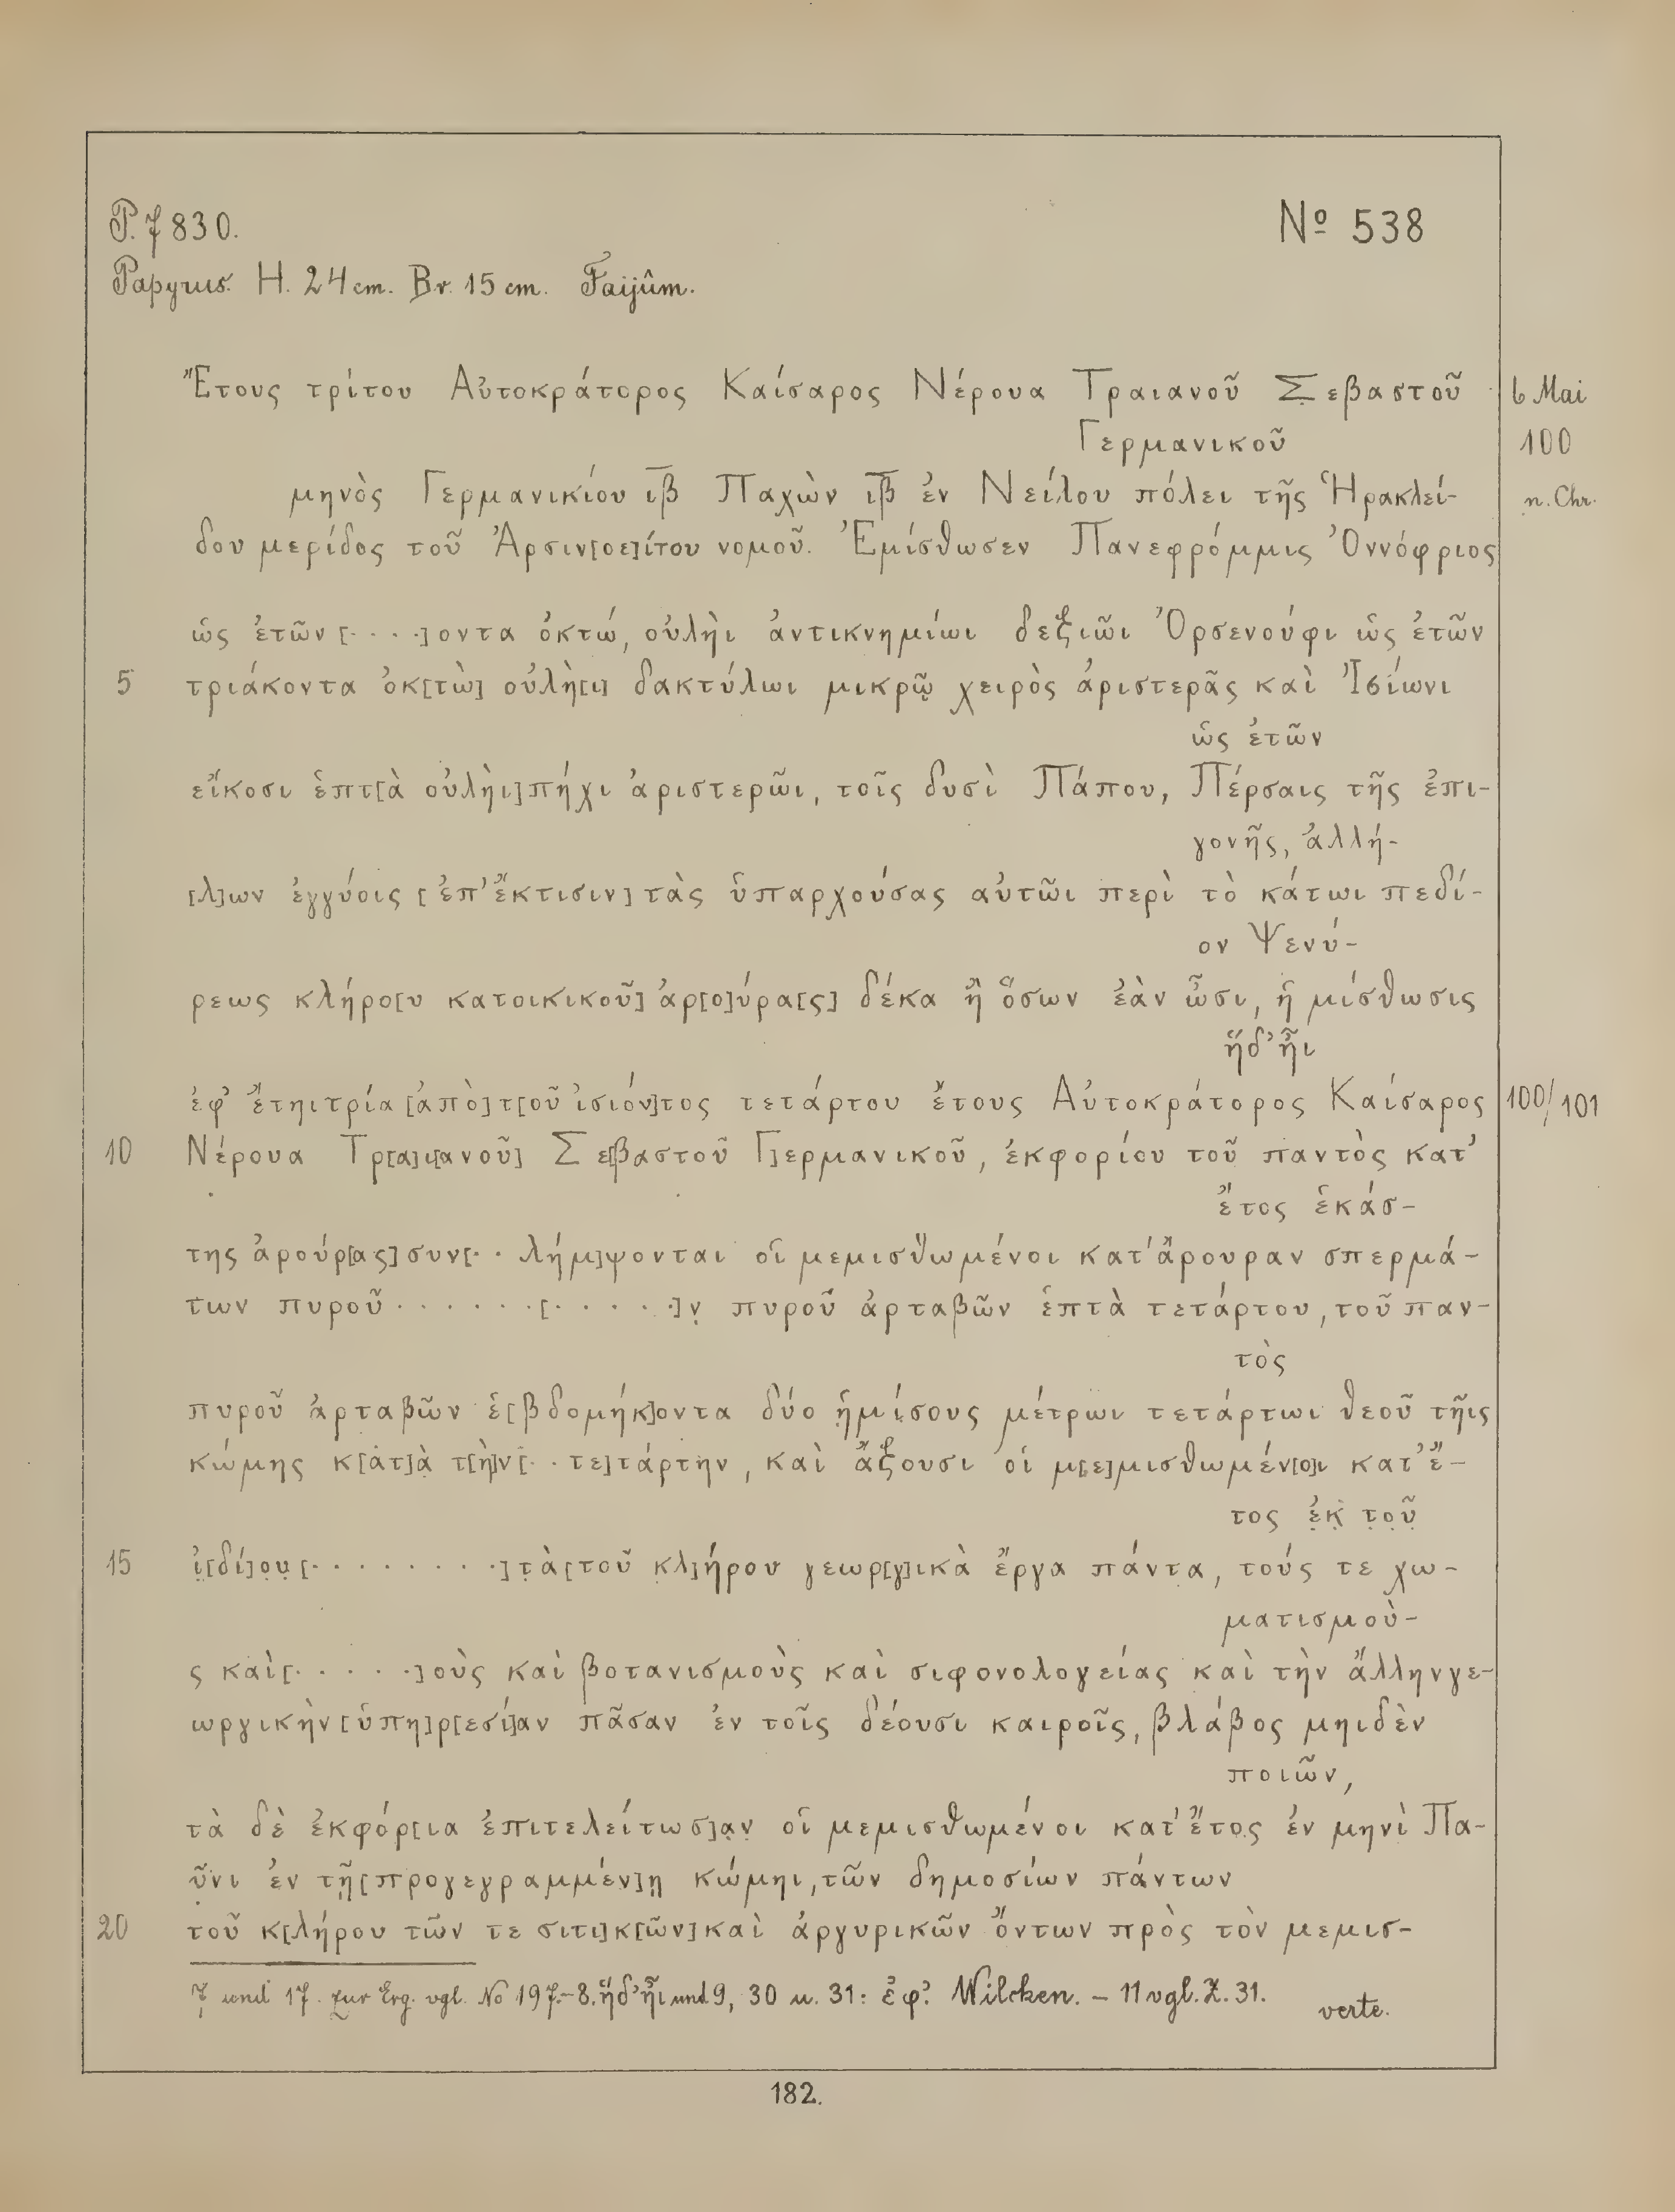 P. 7830.
Nº 538
Papyrus. H. 24 cm. Br. 15 cm. Faijûm.
Ἔτους τρίτου Αὐτοκράτορος Καίσαρος Νέρουα Τραιανοῦ Σ̣εβαστοῦ
6 Mai
Γερμανικοῦ
100
μηνὸς Γερμανικίου ι̅β̅ Παχὼν ι̅β̅ ἐν Νείλου πόλει τῆς Ἡρακλεί-
n. Chr.
δου μερίδος τοῦ Ἀρσιν[οε]ίτου νομοῦ. Ἐμίσθωσεν Πανεφρόμμις Ὀννόφριος
ὡς ἐτῶν [....]οντα ὀκτώ, οὐλὴι ἀντικνημίωι δεξιῶι Ὀρσενούφι ὡς ἐτῶν
5 τριάκοντα ὀκ[τὼ] οὐλὴ[ι] δακτύλωι μικρῷ χειρὸς ἀριστερᾶς καὶ Ἰσίωνι
ὡς ἐτῶν
εἴκοσι ἑπτ[ὰ οὐλὴι] πήχι ἀριστερῶι, τοῖς δυσὶ Πάπου, Πέρσαις τῆς ἐπι-
γονῆς, ἀλλή-
[λ]ων ἐγγύοις [ἐπ' ἔκτισιν] τὰς ὑπαρχούσας αὐτῶι περὶ τὸ κάτωι πεδί-
ον Ψενύ-
ρεως κλήρο[υ κατοικικοῦ] ἀρ[ο]ύρα[ς] δέκα ἢ ὅσων ἐὰν ὦσι, ἡ μίσθωσις
ἥδ' ἦι
ἐφ' ἔτηι τρία [ἀπὸ] τ[οῦ ἰσιόν]τος τετάρτου ἔτους Αὐτοκράτορος Καίσαρος
100/101
10 Νέρουα Τρ[α]ι[ανοῦ] Σε[βαστοῦ Γ]ερμανικοῦ, ἐκφορίου τοῦ παντὸς κατ'
ἔτος ἑκάσ-
της ἀρούρ[ας] συν[.. λήμ]ψονται οἱ μεμισθωμένοι κατ' ἄρουραν σπερμά-
των πυροῦ ......[.....]ν̣ πυροῦ ἀρταβῶν ἑπτὰ τετάρτου, τοῦ παν-
τὸς
πυροῦ ἀρταβῶν ἑ[βδομήκ]οντα δύο ἡμίσους μέτρωι τετάρτωι θεοῦ τῆις
κώμης κ[ατ]ὰ̣ τ[ὴ]ν [.. τε]τάρτην, καὶ ἄξουσι οἱ μ[ε]μισθωμέν[ο]ι κατ' ἔ-
τος ἐ̣κ̣ τ̣ο̣ῦ̣
15 ἰ̣[δί]ο̣υ̣ [.........] τ̣ὰ [τοῦ κλ]ήρου γεωρ[γ]ικὰ ἔργα πάντα, τούς τε χω-
ματισμοὺ-
ς καὶ [.....]οὺς καὶ βοτανισμοὺς καὶ σιφονολογείας καὶ τὴν ἄλλην γε-
ωργικὴν [ὑπη]ρ[εσί]αν πᾶσαν ἐν τοῖς δέουσι καιροῖς, βλάβος μηιδὲν
ποιῶν,
τὰ δὲ ἐκφόρ[ια ἐπιτελείτωσ]α̣ν̣ οἱ μεμισθωμένοι κατ' ἔτος ἐν μηνὶ Πα-
ῦ̣νι ἐν τῇ [προγεγραμμέν]ῃ κώμηι, τῶν δημοσίων πάντων
20 τοῦ κ[λήρου τῶν τε σιτι]κ[ῶν] καὶ ἀργυρικῶν ὄντων πρὸς τὸν μεμισ-
7 und 17. zur Erg. vgl. No 197.– 8. ἥδ' ἦι und 9, 30 u. 31: ἐφ'? Wilcken. – 11 vgl. Z. 31.
verte.
182.